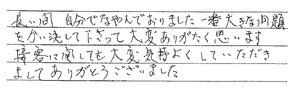 長い間 自分でなやんでおりました 一番大きな問題
をかい決して下さって大変ありがたく思います
接客に関しても大変気持よくしていただき
ましてありがとうございました